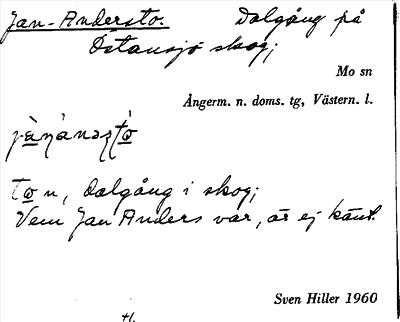 Jan-Andersto. Dalgång på
Östansjö skog;
Mo sn
Ångerm. n. doms. tg, Västern. l.
to n, dalgång i skog;
Vem Jan Anders var, är ej känt.
Sven Hiller 1960